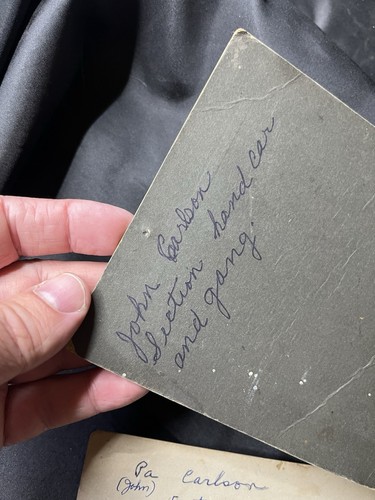 John Carlson
Section hand car
and gang.
Pa Carlson
(John)